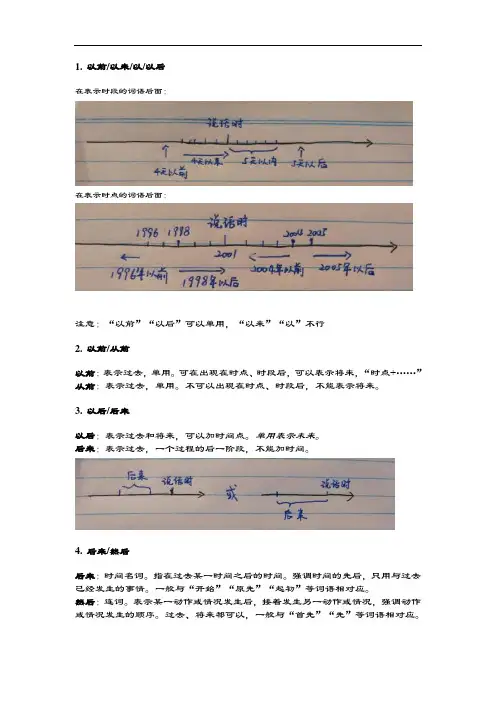 1. 以前/以来/以/以后
在表示时段的词语后面：
说话时
4天以来 5天以内
4天以前 5天以后
在表示时点的词语后面：
说话时
1996 1998 2004 2005
2001
1996年以前 1998年以后 2004年以前 2005年以后
注意：“以前”“以后”可以单用，“以来”“以”不行
2. 以前/从前
以前：表示过去，单用。可在出现在时点、时段后，可以表示将来，“时点+……”
从前：表示过去，单用。不可以出现在时点、时段后，不能表示将来。
3. 以后/后来
以后：表示过去和将来，可以加时间点。单用表示未来。
后来：表示过去，一个过程的后一阶段，不能加时间。
后来 说话时 或 说话时
后来
4. 后来/然后
后来：时间名词。指在过去某一时间之后的时间。强调时间的先后，只用与过去
已经发生的事情。一般与“开始”“原先”“起初”等词语相对应。
然后：连词。表示某一动作或情况发生后，接着发生另一动作或情况，强调动作
或情况发生的顺序。过去、将来都可以，一般与“首先”“先”等词语相对应。